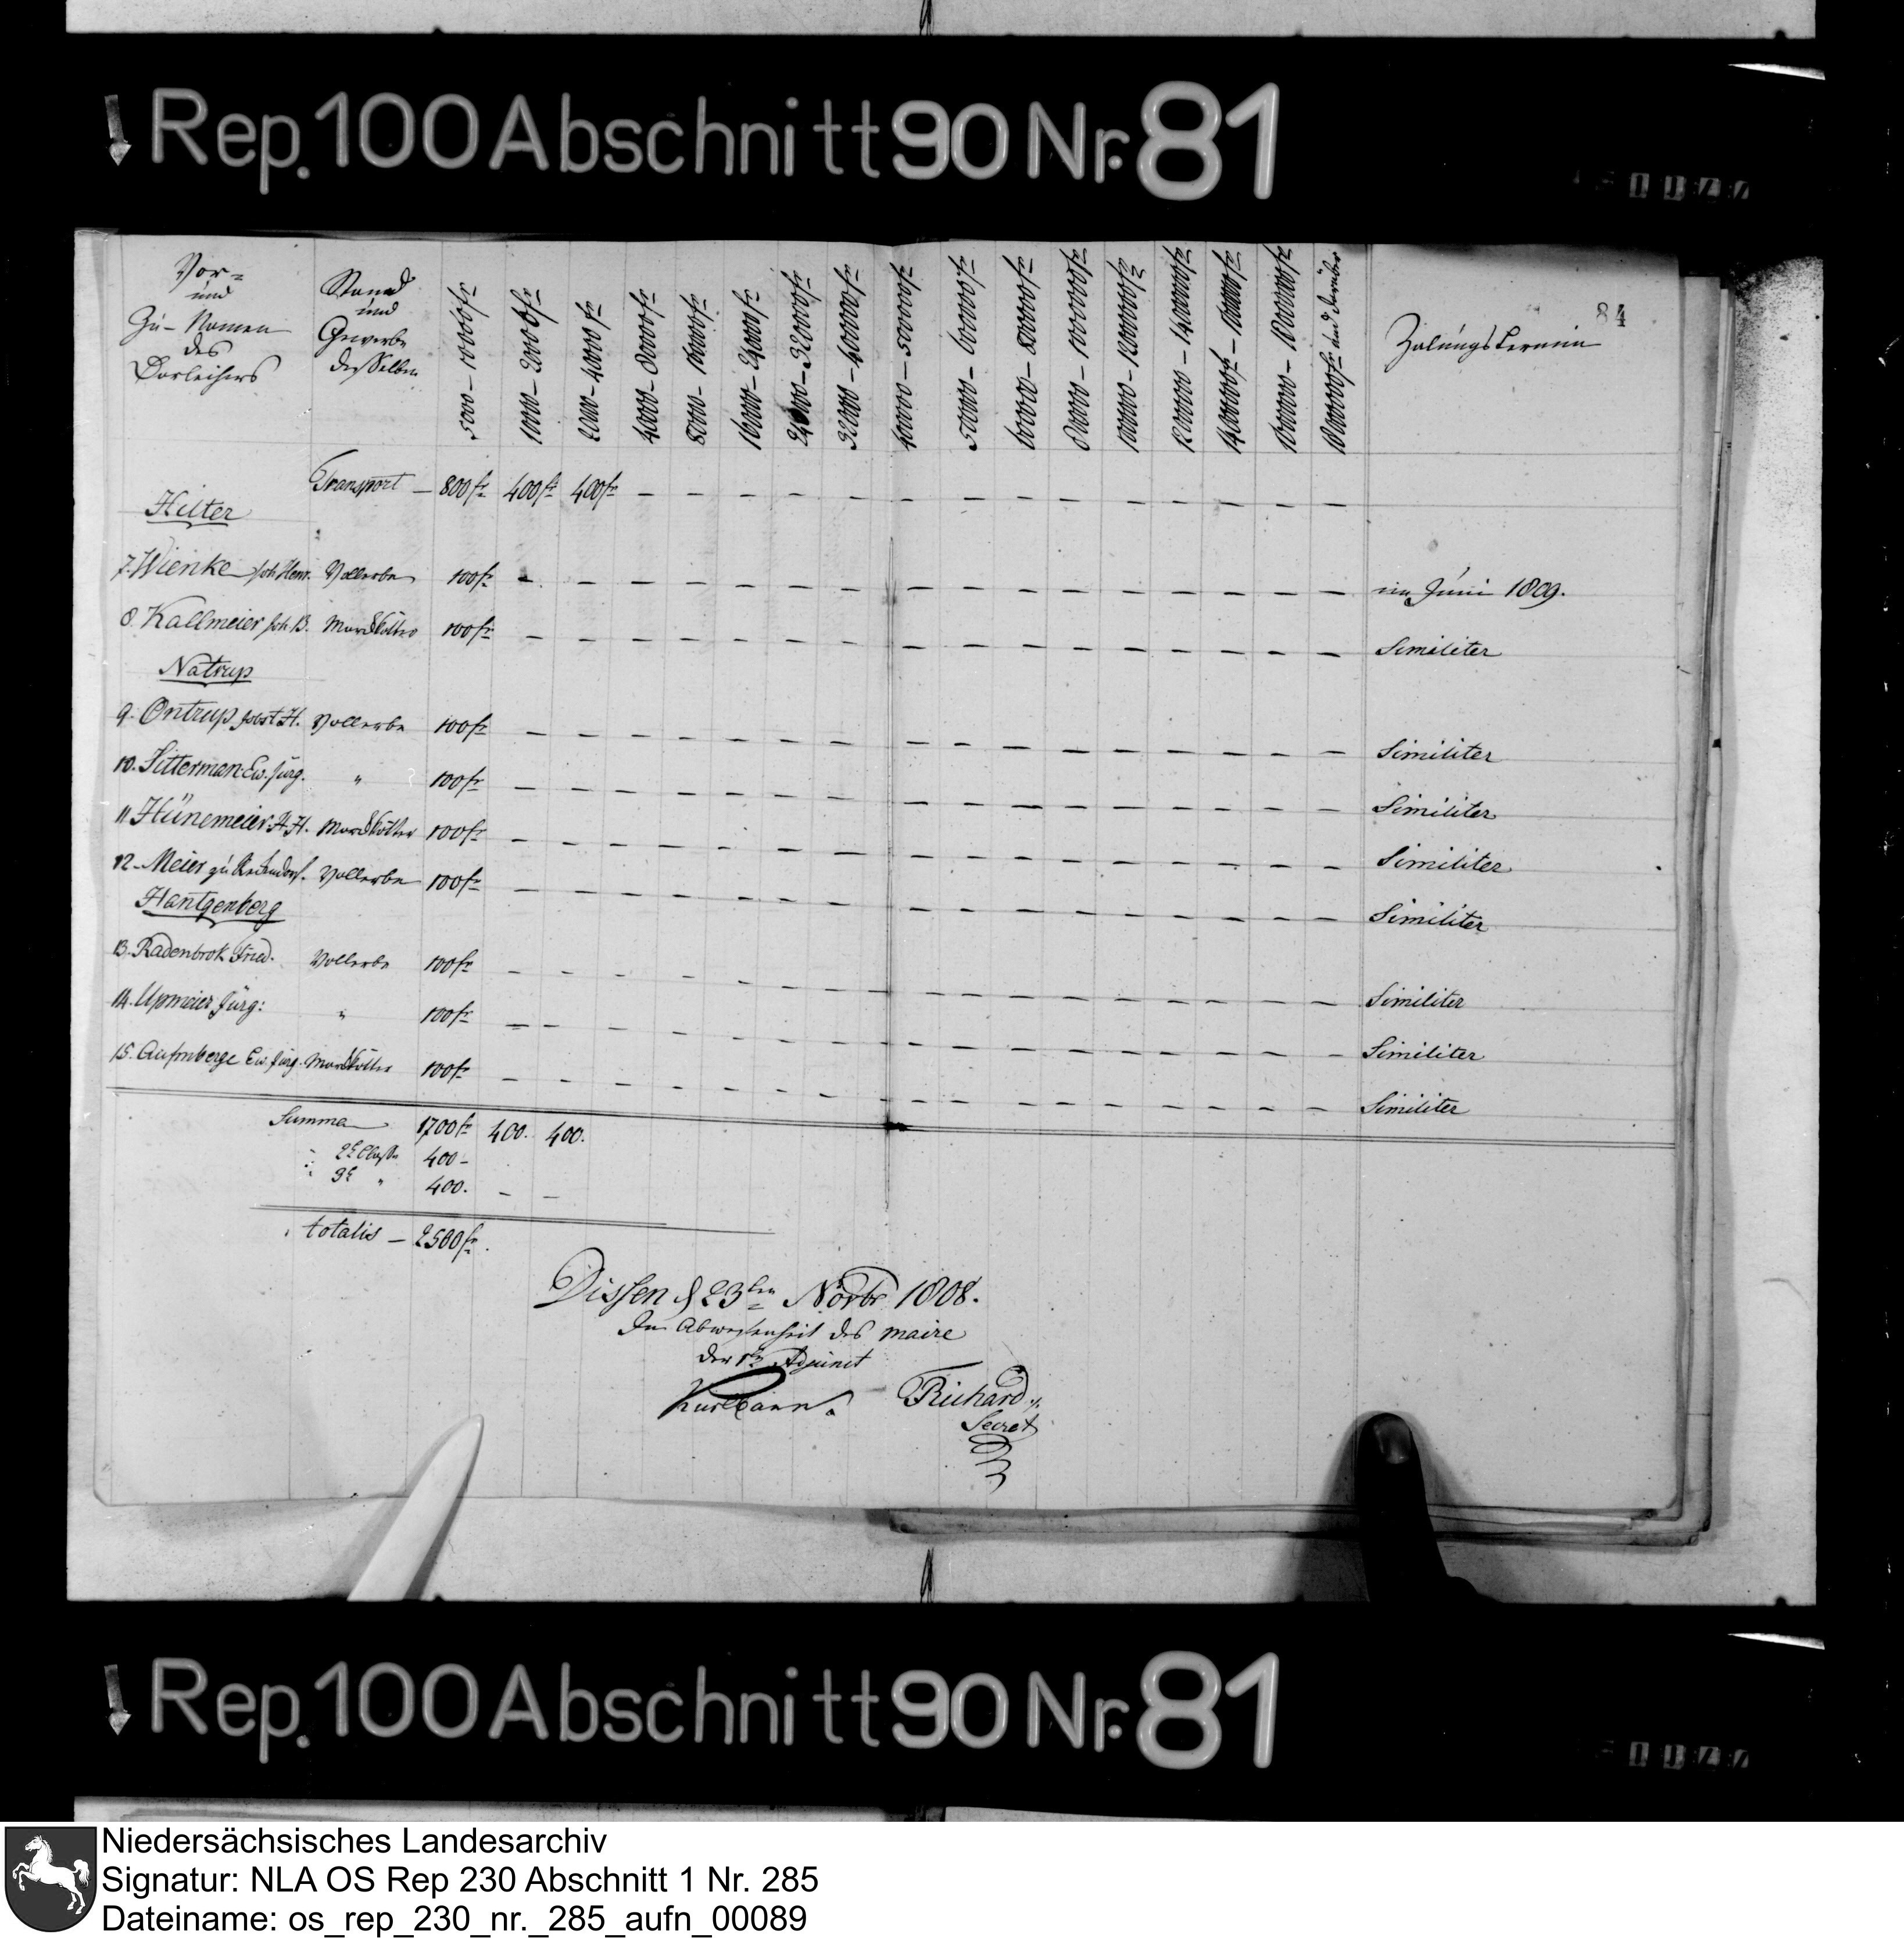 Rep. 100 Abschnitt 90 Nr. 81
84
Vor- und Zu-Namen des Darleihers
Stand und Gewerbe desselben
5000-10000 fr
10000-20000 fr
20000-40000 fr
40000-80000 fr
80000-160000 fr
160000-240000 fr
240000-320000 fr
320000-400000 fr
400000-500000 fr
500000-600000 fr
600000-800000 fr
800000-1000000 fr
1000000-1200000 fr
1200000-1400000 fr
1400000 fr-1600000 fr
1600000-1800000 fr
1800000 fr und darüber
Zalungstermin
Transport - 800 fr 400 fr 400 fr - - - - - - - - - - - - - -
Hilter
7. Wienke Joh Henr. Vollerbe 100 fr - - - - - - - - - - - - - - - - im Juni 1809.
8. Kallmeier Joh B. Markkötter 100 fr - - - - - - - - - - - - - - - - Similiter
Natrup
9. Ontrup Jobst H. Vollerbe 100 fr - - - - - - - - - - - - - - - - Similiter
10. Sitterman Ew. Jürg. " 100 fr - - - - - - - - - - - - - - - - Similiter
11 Hünemeier H. H. Markkötter 100 fr - - - - - - - - - - - - - - - - Similiter
12. Meier zu Vollerbe 100 fr - - - - - - - - - - - - - - - - Similiter
Hantgenberg
13. Radenbrok Fried. Vollerbe 100 fr - - - - - - - - - - - - - - - - Similiter
14. Upmeier Jürg: " 100 fr - - - - - - - - - - - - - - - - Similiter
15. Aufmberge Ew. Jürg. Markkötter 100 fr - - - - - - - - - - - - - - - - Similiter
Summa 1700 fr 400. 400.
" 2t Classe 400 -
" 3t " 400. - -
totalis - 2500 fr.
Dissen d 23ten Novbr 1808.
In Abwesenheit des maire
der 1te Adjunct
Richard
Secret
Rep. 100 Abschnitt 90 Nr. 81
Niedersächsisches Landesarchiv
Signatur: NLA OS Rep 230 Abschnitt 1 Nr. 285
Dateiname: os_rep_230_nr._285_aufn_00089